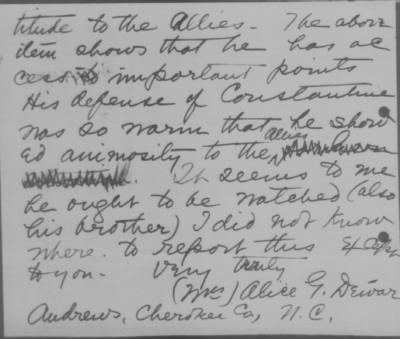 titude to the Allies. The above
item shows that he has ac
cess to important points
His defense of Constantine
was so warm that he show
ed animosity to the allies
. It seems to me
he ought to be watched (also
his brother) I did not know
where to report this except
to you - Very truly
(Mrs) Alice G. Dewar
Andrews, Cherokee Co, N.C.